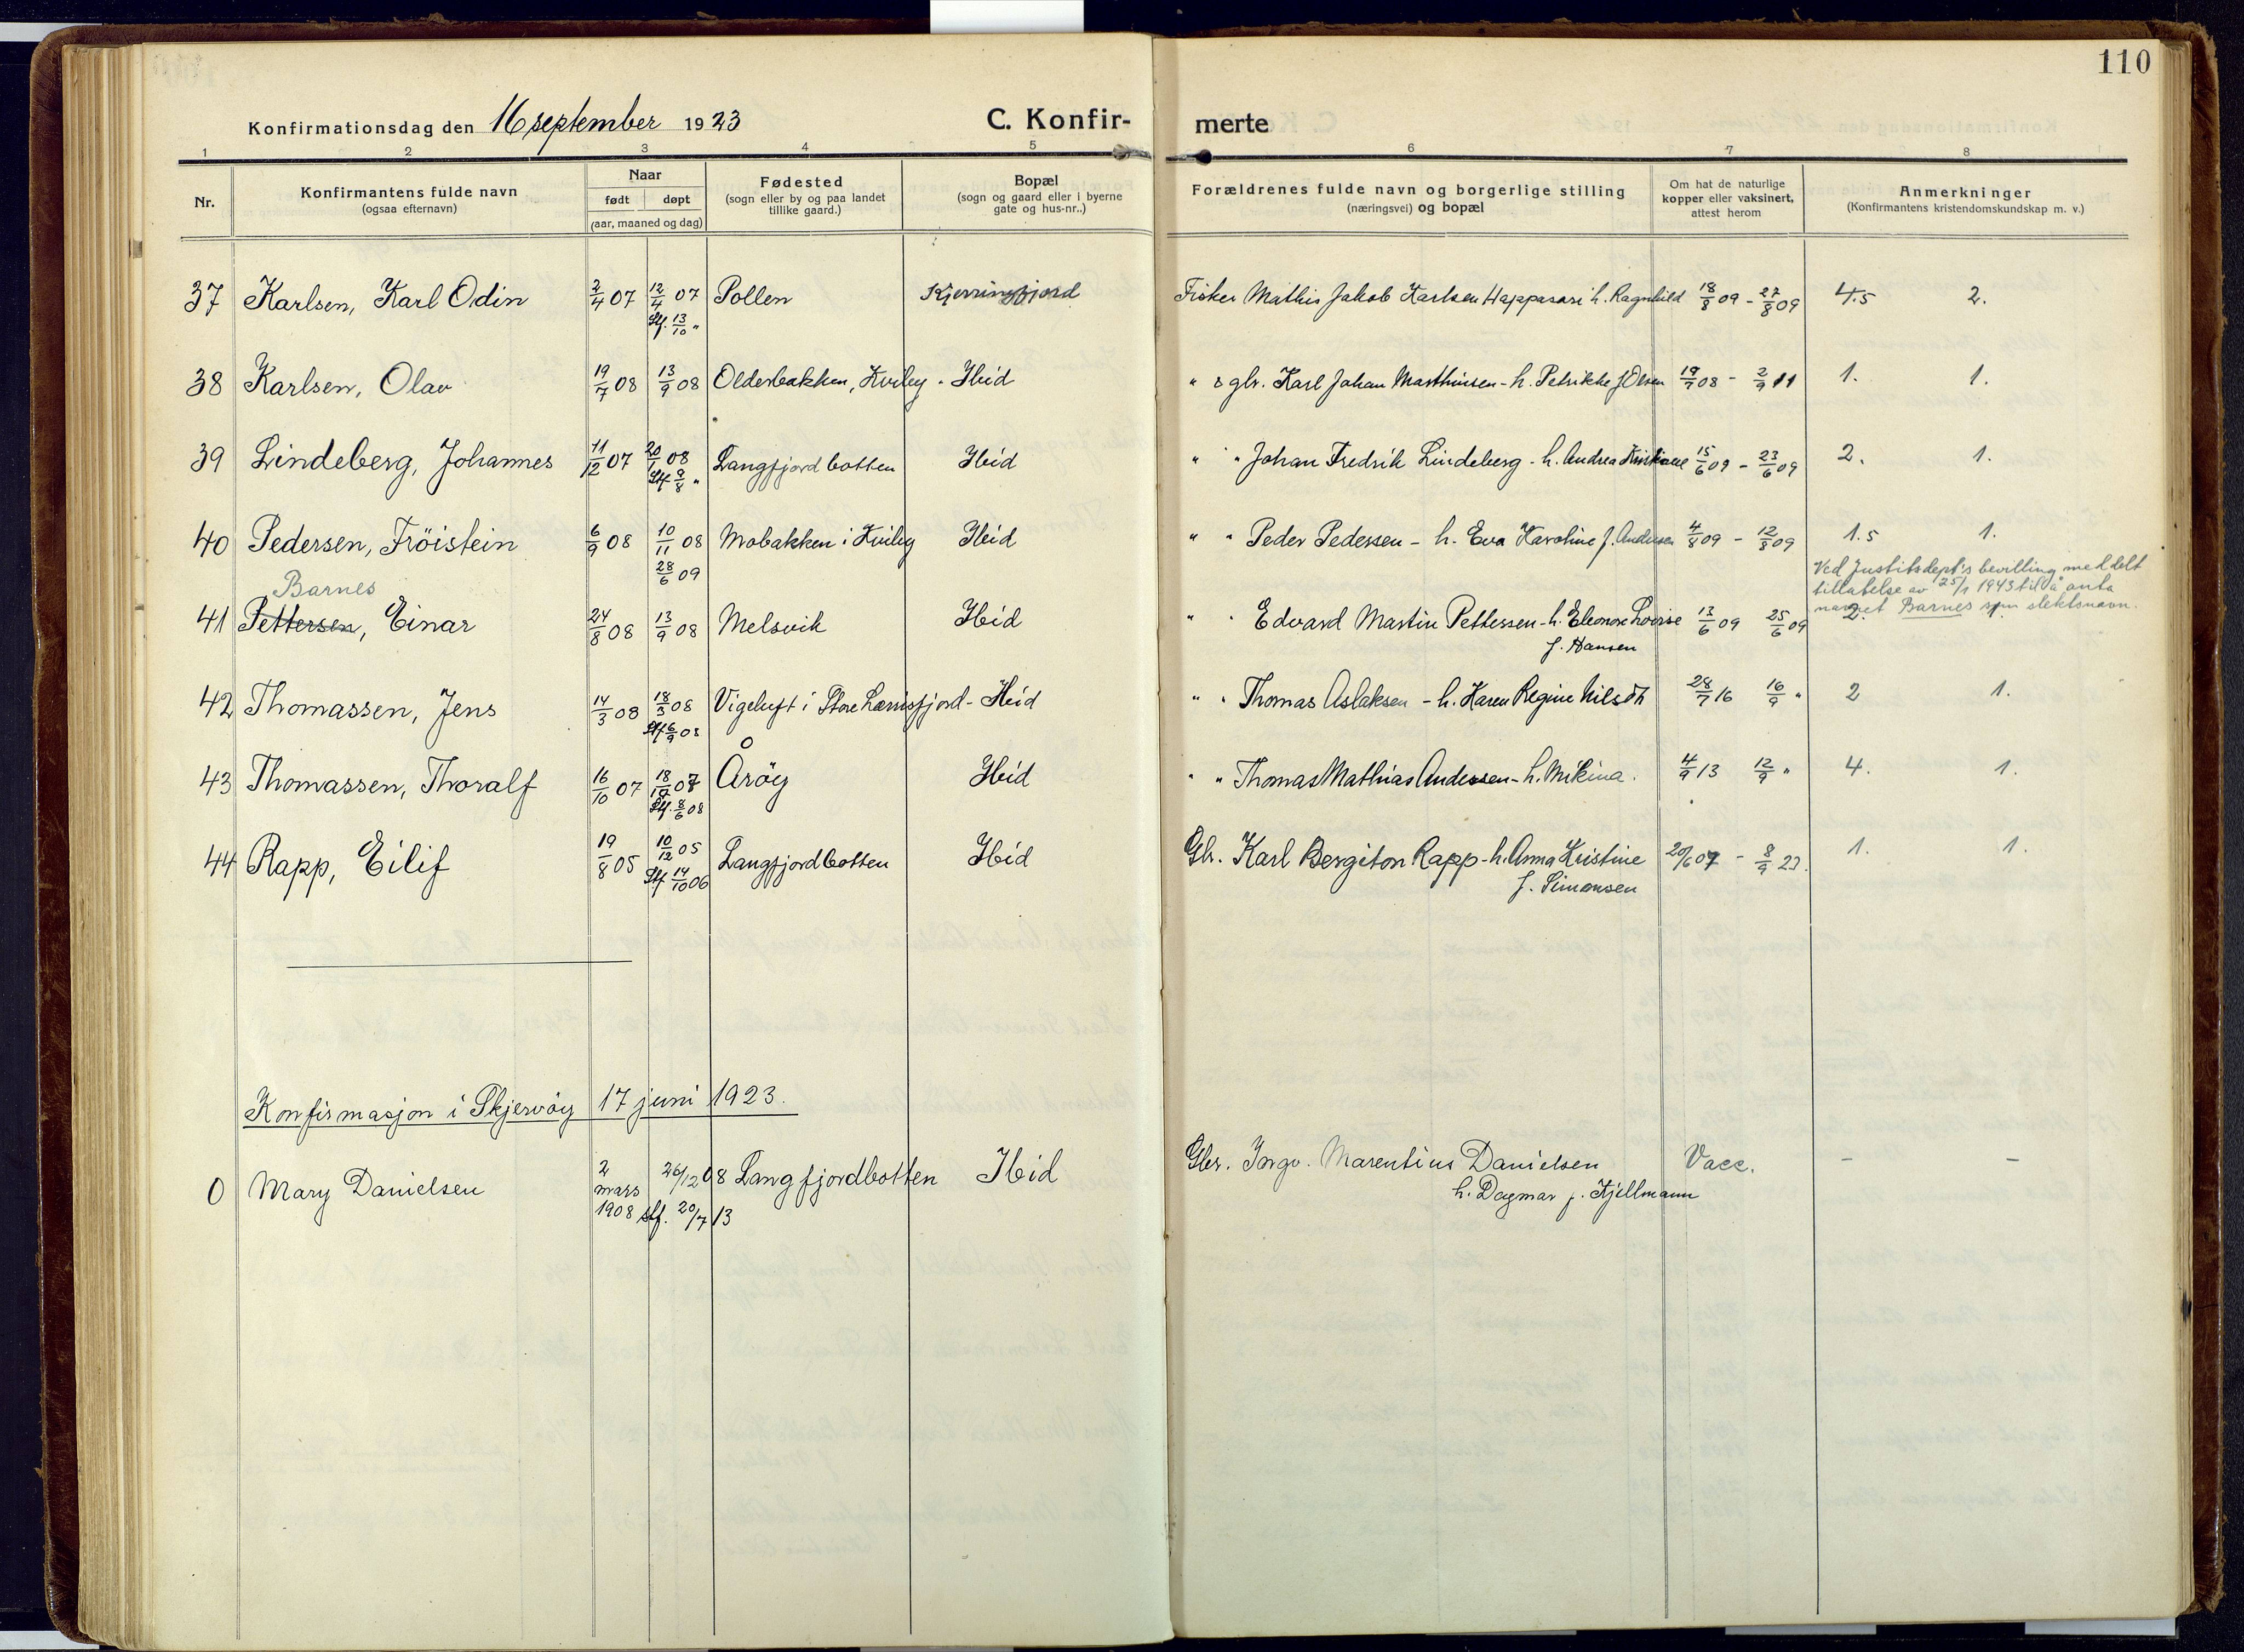 110
Konfirmationsdag den 16 september 1923 C. Konfir- merte
1 2 3 4 5 6 7 8
Nr. Konfirmantens fulde navn (ogsaa efternavn) Naar født døpt (aar, maaned og dag) Fødested (sogn eller by og paa landet tillike gaard.) Bopæl (sogn og gaard eller i byerne gate og hus-nr..) Forældrenes fulde navn og borgerlige stilling (næringsvei) og bopæl Om hat de naturlige kopper eller vaksinert, attest herom Anmerkninger (Konfirmantens kristendomskundskap m. v.)
37 Karlsen, Karl Odin 2/4 07 12/4 07 Pollen Kjerringfjord Fisker Mathis Jakob Karlsen Happasari h. Ragnhild 18/8 09 - 27/8 09 4.5 2.
Stf. 13/10 "
38 Karlsen, Olav 19/7 08 13/9 08 Olderbakken, Kviby - Ibid " & gbr. Karl Johan Marthinsen - h. Petrikke f. Olsen 19/7 08 - 2/9 11 1. 1.
39 Lindeberg, Johannes 11/12 07 20/1 08 Langfjordbotten Ibid " " Johan Fredrik Lindeberg - h. Andrea 15/6 09 - 23/6 09 2. 1.
Stf. 9/8 "
40 Pedersen, Fröistein 6/9 08 10/11 08 Mobakken i Kviby Ibid " " Peder Pedersen - h. Eva Karoline f. Andersen 4/8 09 - 12/8 09 1.5 1.
28/6 09
Barnes
Ved Justitsdept's bevilling meddelt
tillatelse av 25/1 1943 til å anta
navnet Barnes som slektsnavn.
41 Pettersen, Einar 24/8 08 13/9 08 Melsvik Ibid " " Edvard Martin Pettersen - h. Eleonore Lovise 13/6 09 25/6 09 2. 1.
f. Hansen
42 Thomassen, Jens 14/3 08 18/3 08 Vigeluft i Store Lerrisfjord - Ibid " " Thomas Aslaksen - h. Karen Regine Nilsdtr 28/7 16 16/9 " 2 1.
Stf 6/9 08
43 Thomassen, Thoralf 16/10 07 18/10 07 Åröy Ibid " " Thomas Mathias Andersen - h. Mikina. 4/9 13 12/9 " 4. 1.
Stf. 8/6 08
44 Rapp, Eilif 19/8 05 10/12 05 Langfjordbotten Ibid Gbr. Karl Bergiton Rapp - h. Anna Kristine 20/6 07 - 8/9 23. 1. 1.
Stf 14/10 06 f. Simonsen
Konfirmasjon i Skjervöy 17 juni 1923.
0 Mary Danielsen 2 mars 1908 26/12 08 Langfjordbotten Ibid Gbr. Ingv. Marentius Danielsen Vacc. - -
stf. 20/7 13 h. Dagmar f. Kjellmann